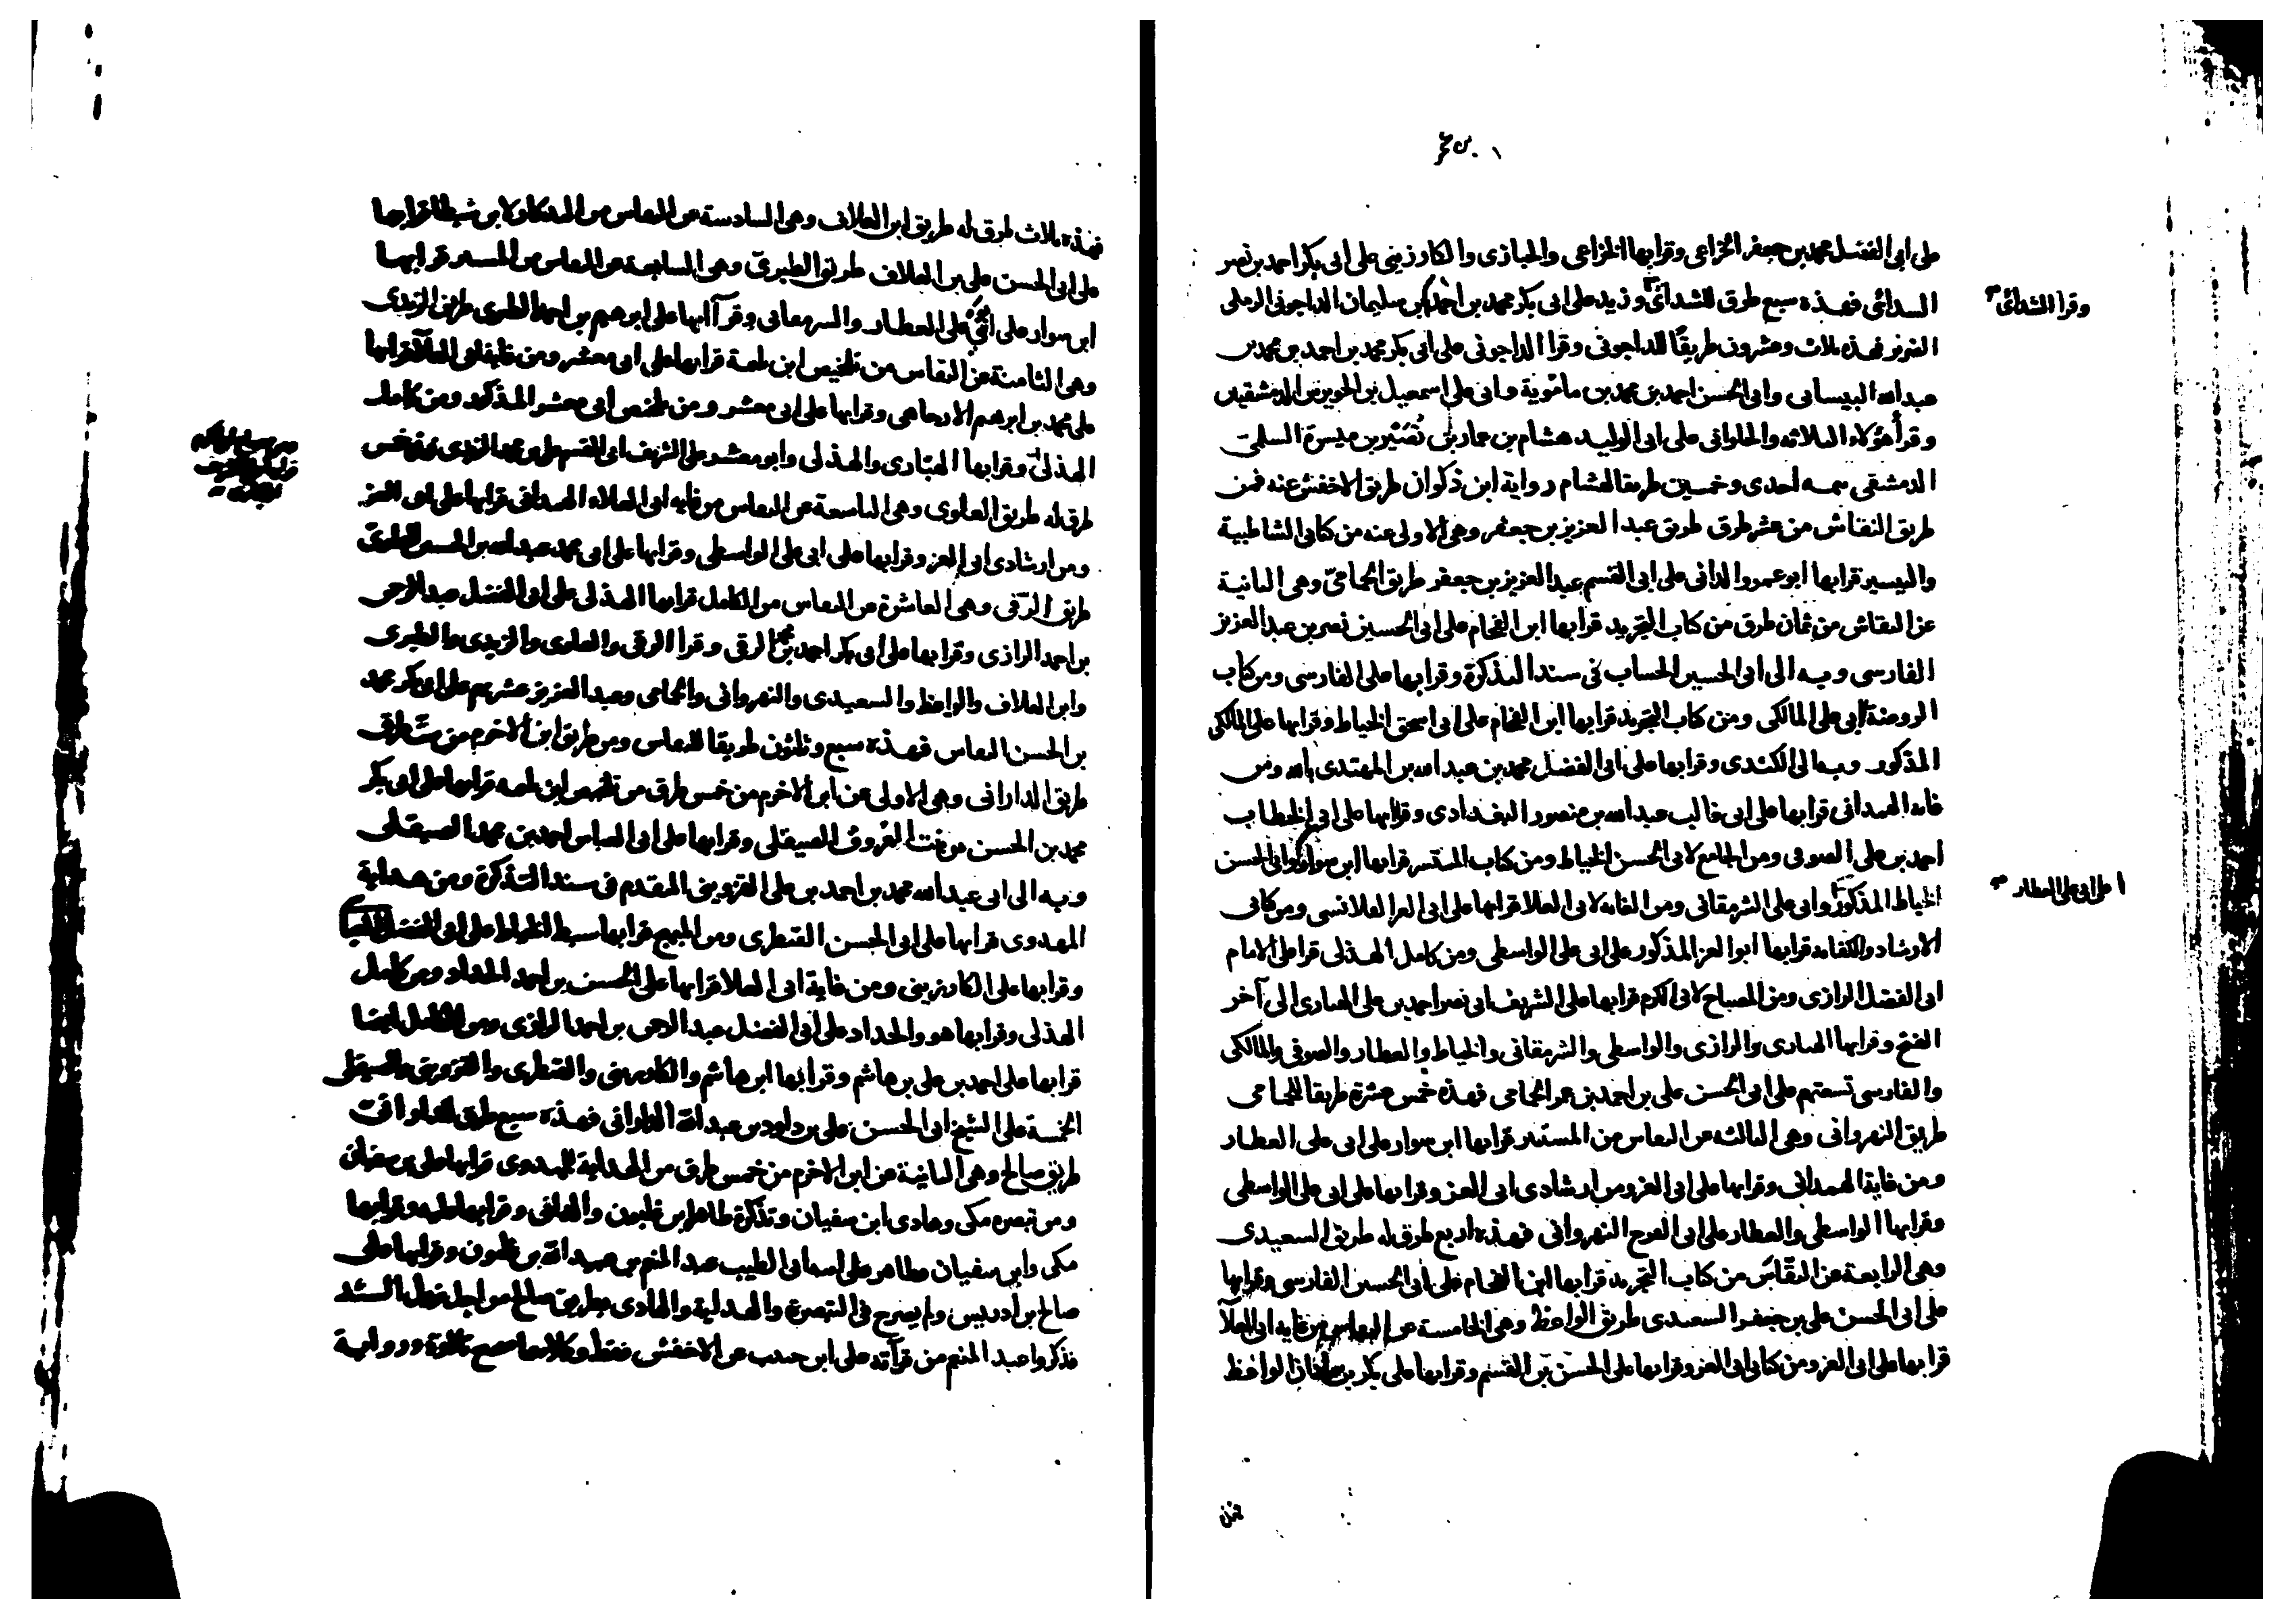 على ابى الفضل محمد بن جعفر الخزاعى وقرا بها الخزاعى والخبازى والكارزينى على ابى بكر احمد بن نصر
السدائى فهذه سبع طرق للشدائى وزيد على ابى بكر محمد بن احمد بن سليمان الداجونى الرملى
وقرا الشدائى
الضرير فهذه ثلاث وعشرون طريقا للداجونى وقرا الداجونى على ابى بكر محمد بن احمد بن محمد بن
عبد الله البيسانى وابى الحسن احمد بن محمد بن مامويه وابى على اسمعيل بن الحويرس الدمشقيين
وقرا هؤلاء الثلاثه والحلوانى على ابى الوليد هشام بن عمار بن نصير بن ميسرة السلمى
الدمشقى تتمه احدى وخمسين طريقا لهشام رواية ابن ذكوان طريق الاخفش عنه فمن
طريق النقاش من عشر طرق طريق عبد العزيز بن جعفر وهى الاولى عنه من كتابى الشاطبية
والتيسير قرا بها ابو عمرو الدانى على ابى القسم عبد العزيز بن جعفر طريق الحمامى وهى الثانية
عن النقاش من ثمان طرق من كتاب التجريد قرا بها ابن الفحام على ابى الحسين نصر بن عبد العزيز
الفارسى وبه الى ابى الحسين الخشاب فى سند التذكرة وقرا بها على الفارسى ومن كتاب
الروضة لابى على المالكى ومن كتاب التجريد قرا بها ابن الفحام على ابى اسحق الخياط وقرا بها على المالكى
المذكور وبه الى الكندى وقرا بها على ابى الفضل محمد بن عبد الله بن المهتدى بالله ومن
غايه الهمدانى قرا بها على ابى غالب عبد الله بن منصور البغدادى وقرا بها على ابى الخطاب
احمد بن على الصوفى ومن الجامع لابى الحسن الخياط ومن كتاب المستنير قرا بها ابن سوار وابى الحسن
على ابى على العطار
الخياط المذكور وابى على الشرمقانى ومن الغايه لابى العلا قرا بها على ابى العز القلانسى ومن كتابى
الارشاد والكفايه قرا بها ابو العز المذكور على ابى على الواسطى ومن كامل الهذلى قرا على الامام
ابى الفضل الرازى ومن المصباح لابى الكرم قرا بها على الشريف ابى نصر احمد بن على الهبارى الى آخر
الفتح وقرا بها الهبارى والرازى والواسطى والشرمقانى والخياط والعطار والصوفى والمالكى
والفارسى تسعتهم على ابى الحسن على بن احمد بن عمر الحمامى فهذه خمس عشرة طريقا للحمامى
طريق النهروانى وهى الثالثه عن النقاش من المستنير قرا بها ابن سوار على ابى على العطار
ومن غاية الهمدانى وقرا بها على ابى العز ومن ارشادى ابى العز وقرا بها على ابى على الواسطى
وقرا بها الواسطى والعطار على ابى الفرج النهروانى فهذه اربع طرق له طريق السعيدى
وهى الرابعة عن النقاش من كتاب التجريد قرا بها ابن الفحام على ابى الحسين الفارسى وقرا بها
على ابى الحسن على بن جعفر السعيدى طريق الواعظ وهى الخامسة عن النقاش من غايه ابى العلا
قرا بها على ابى العز ومن كتابى ابى العز وقرا بها على الحسن بن القسم وقرا بها على بكر بن شاذان الواعظ
فهذه ثلاث طرق له طريق ابن العلاف وهى السادسة عن النقاش من التذكار لابن شيطا قرا بها
على ابى الحسن على بن العلاف طريق الطبرى وهى السابعة عن النقاش من المستنير قرا بها
ابن سوار على العطار والشرمقانى وقرآ بها على ابرهيم بن احمد الطبرى طريق الزيدى
وهى الثامنة عن النقاش من تلخيص ابن بليمة قرا بها على ابى معشر ومن غاية ابى العلا قرا بها
على محمد بن ابرهيم الارجاهى وقرا بها على ابى معشر ومن تلخيص ابى معشر المذكور ومن كامل
الهذلى وقرا بها الهبارى والهذلى وابو معشر على الشريف ابى القسم على بن محمد الزيدى فهذه خمس
طرق له طريق العلوى وهى التاسعة عن النقاش من غايه ابى العلاء الهمدانى قرا بها على ابى العز
ومن ارشادى ابى العز وقرا بها على ابى على الواسطى وقرا بها على ابى محمد عبد الله بن الحسين العلوى
طريق الرقى وهى العاشرة عن النقاش من الكامل قرا بها الهذلى على ابى الفضل عبد الرحمن
بن احمد الرازى وقرا بها على ابى بكر احمد بن محمد الرقى وقرا الرقى والعلوى والزيدى والطبرى
وابن العلاف والواعظ والسعيدى والنهروانى والحمامى وعبد العزيز عشرتهم على ابى بكر محمد
بن الحسن النقاش فهذه سبع وثلثون طريقا للنقاش ومن طريق ابن الاخرم من ست طرق
طريق الدارانى وهى الاولى عن ابن الاخرم من خمس طرق من تلخيص ابن بليمه قرا بها على ابى بكر
محمد بن الحسن بن بنت العروق الصيقلى وقرا بها على ابى العباس احمد بن محمد الصيقلى
وبه الى ابى عبد الله محمد بن احمد بن على القزوينى المقدم فى سند التذكرة ومن هداية
المهدوى قرا بها على ابى الحسن القنطرى ومن المبهج قرا بها سبط الخياط على ابى الفضل
وقرا بها على الكارزينى ومن غاية ابى العلا قرا بها على الحسن بن احمد الحداد ومن كامل
الهذلى وقرا بها هو والحداد على ابى الفضل عبد الرحمن بن احمد الرازى ومن الكامل ايضا
قرا بها على احمد بن على بن هاشم وقرا بها ابن هاشم والكارزينى والقنطرى والقزوينى والصيقلى
الخمسة على الشيخ ابى الحسن على بن داود بن عبد الله الدارانى فهذه سبع طرق للدارانى
طريق صالح وهى الثانية عن ابن الاخرم من خمس طرق من الهداية للمهدوى قرا بها على بن سفيان
ومن تبصره مكى وهادى ابن سفيان وتذكرة طاهر ابن غلبون والدانى وقرا بها عليه وقرا بها
مكى وابن سفيان وطاهر على ابيه ابى الطيب عبد المنعم بن عبيد الله بن غلبون وقرا بها على
صالح بن ادريس ولم يصرح فى التبصرة والهداية والهادى بطريق صالح من اجل نزول السند
فذكروا عبد المنعم من قرآته على ابن حبيب عن الاخفش فقط وكلاهما صحيح تلاوة ورواية